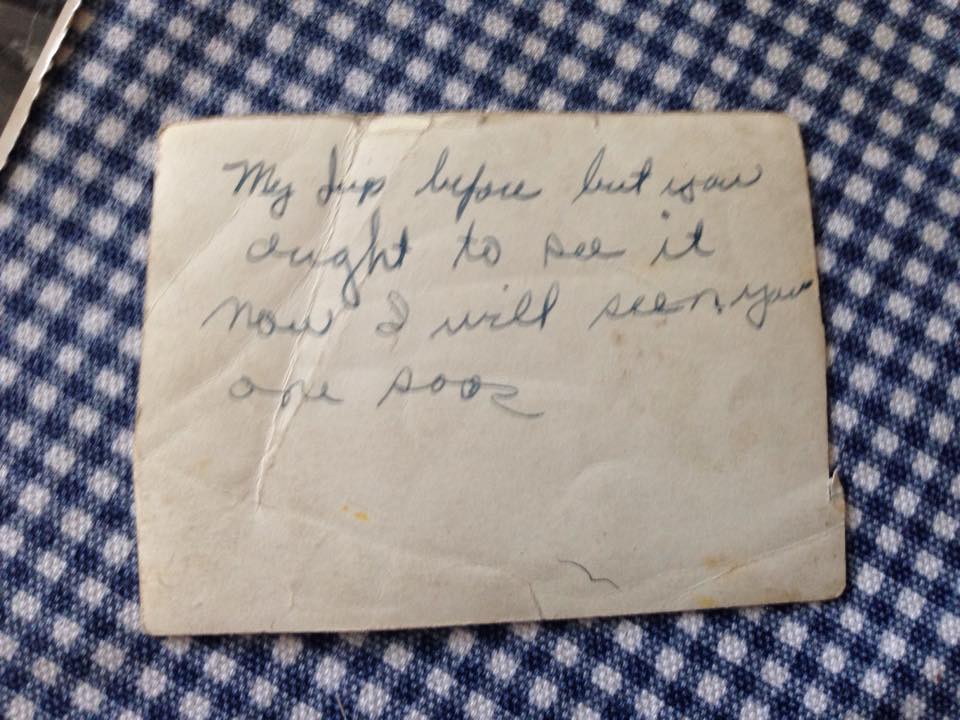 My Jeep before but you
ought to see it
now I will seen you
one soon